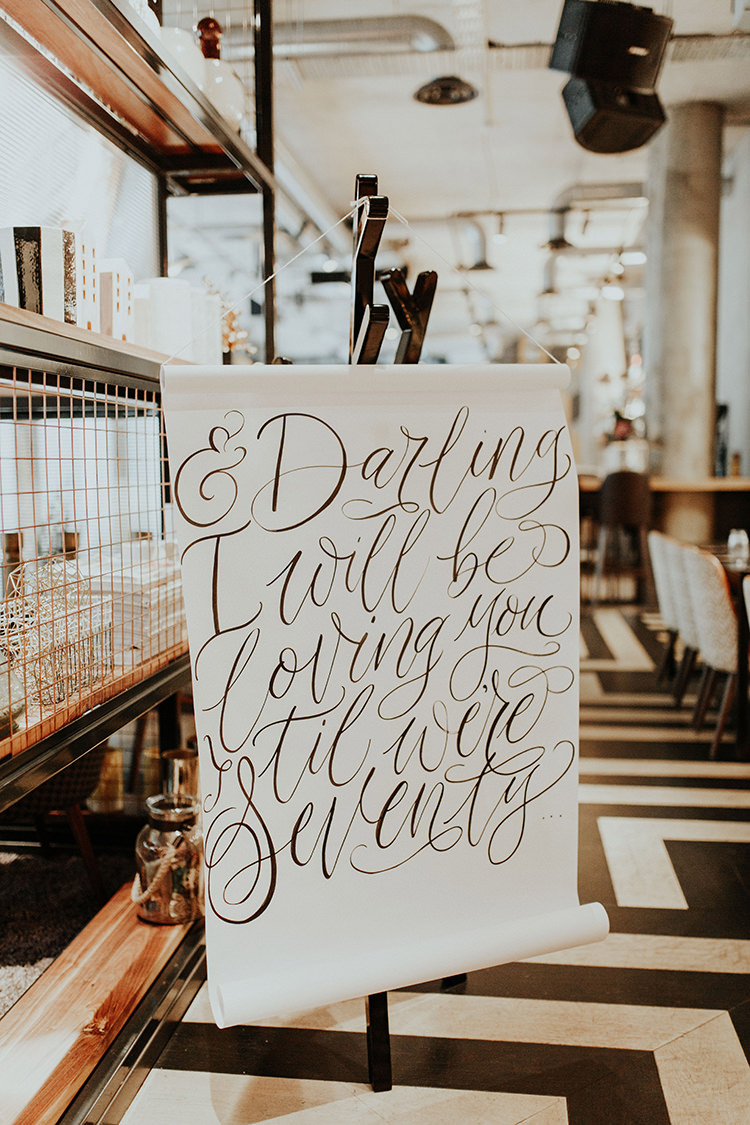 & Darling
I will be
loving you
'til we're
Seventy...